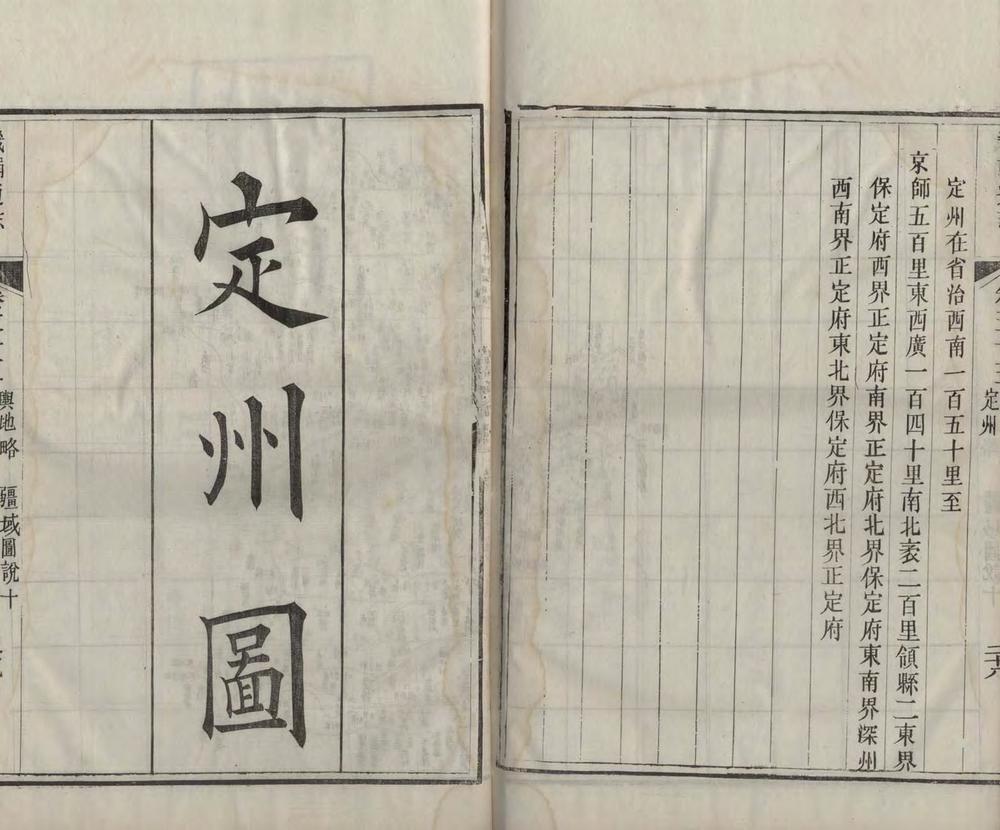 定州
二十六
定州在省治西南一百五十里至
京師五百里東西廣一百四十里南北袤二百里領縣二東界
保定府西界正定府南界正定府北界保定府東南界深州
西南界正定府東北界保定府西北界正定府
定州圖
輿地略 疆域圖說十